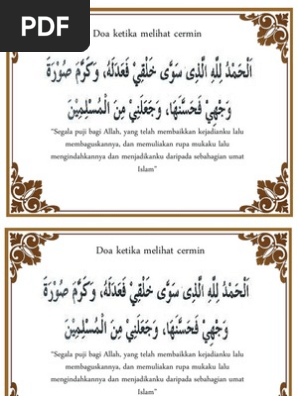 PDF
Doa ketika melihat cermin
اَلْحَمْدُ لِلّٰهِ الَّذِى سَوَّى خَلْقِيْ فَعَدَلَهُ، وَكَرَّمَ صُوْرَةَ
وَجْهِيْ فَحَسَّنَهَا، وَجَعَلَنِيْ مِنَ الْمُسْلِمِيْنَ
"Segala puji bagi Allah, yang telah membaikkan kejadianku lalu
membaguskannya, dan memuliakan rupa mukaku lalu
mengindahkannya dan menjadikanku daripada sebahagian umat
Islam"
Doa ketika melihat cermin
اَلْحَمْدُ لِلّٰهِ الَّذِى سَوَّى خَلْقِيْ فَعَدَلَهُ، وَكَرَّمَ صُوْرَةَ
وَجْهِيْ فَحَسَّنَهَا، وَجَعَلَنِيْ مِنَ الْمُسْلِمِيْنَ
"Segala puji bagi Allah, yang telah membaikkan kejadianku lalu
membaguskannya, dan memuliakan rupa mukaku lalu
mengindahkannya dan menjadikanku daripada sebahagian umat
Islam"